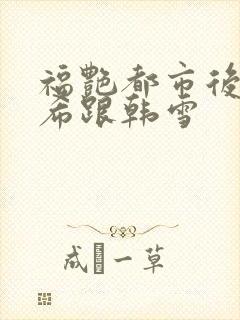 福艷都市後
希跟韩雪
成一草